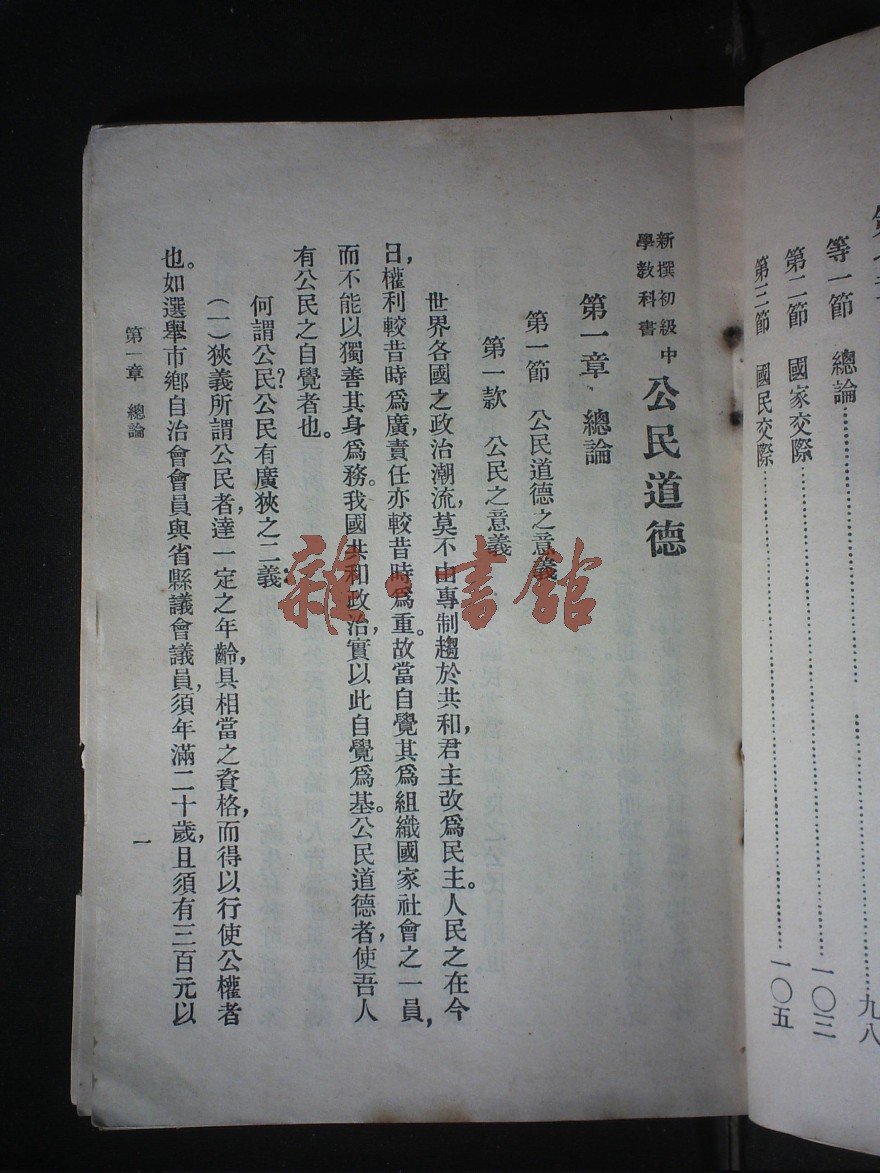 等一節 總論……………九八
第二節 國家交際……………一〇三
第三節 國民交際……………一〇五
新撰初級中
學教科書
公民道德
第一章、總論
第一節 公民道德之意義
第一款 公民之意義
世界各國之政治潮流,莫不由專制趨於共和,君主改爲民主。人民之在今
日,權利較昔時爲廣,責任亦較昔時爲重。故當自覺其爲組織國家社會之一員,
而不能以獨善其身爲務。我國共和政治,實以此自覺爲基。公民道德者,使吾人
有公民之自覺者也。
何謂公民?公民有廣狹之二義:
(一)狹義所謂公民者,達一定之年齡,具相當之資格,而得以行使公權者
也。如選舉市鄉自治會會員與省縣議會議員,須年滿二十歲,且須有三百元以
第一章 總論
一
雜·書館